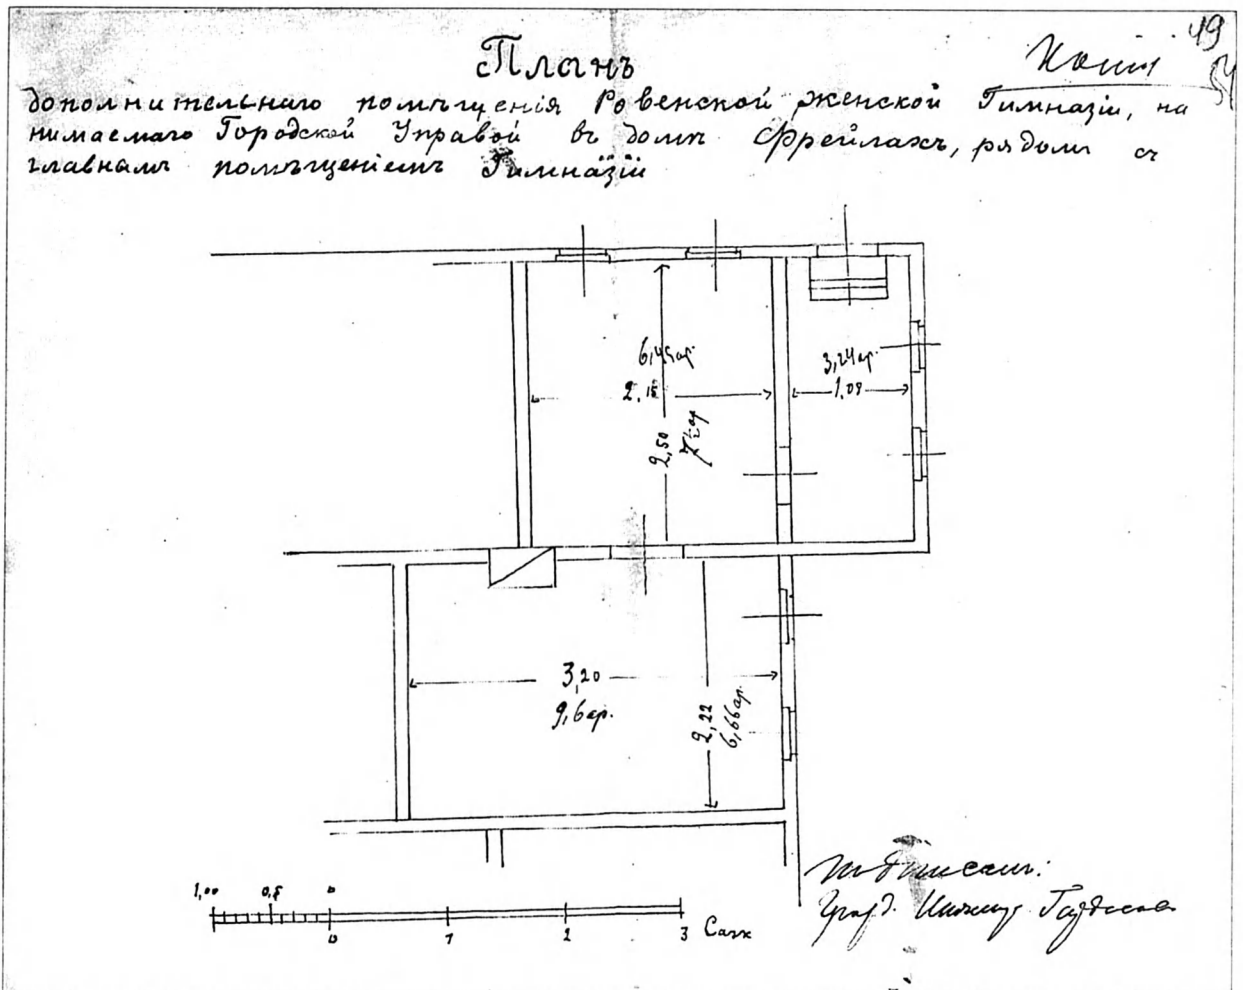 49
Копия
Планъ
дополнительнаго помѣщенія Ровенской женской Гимназіи, на
нимаемаго Городской Управой въ домѣ Фрейлахъ, рядомъ съ
главнымъ помѣщеніемъ Гимназіи
6,45 ар.
2,15
2,50
7½ ар
3,24 ар.
1,08
3,20
9,6 ар.
2,22
6,66 ар.
1,00 0,5 0
0 1 2 3 Саж
Подписалъ:
Град. Инжен.